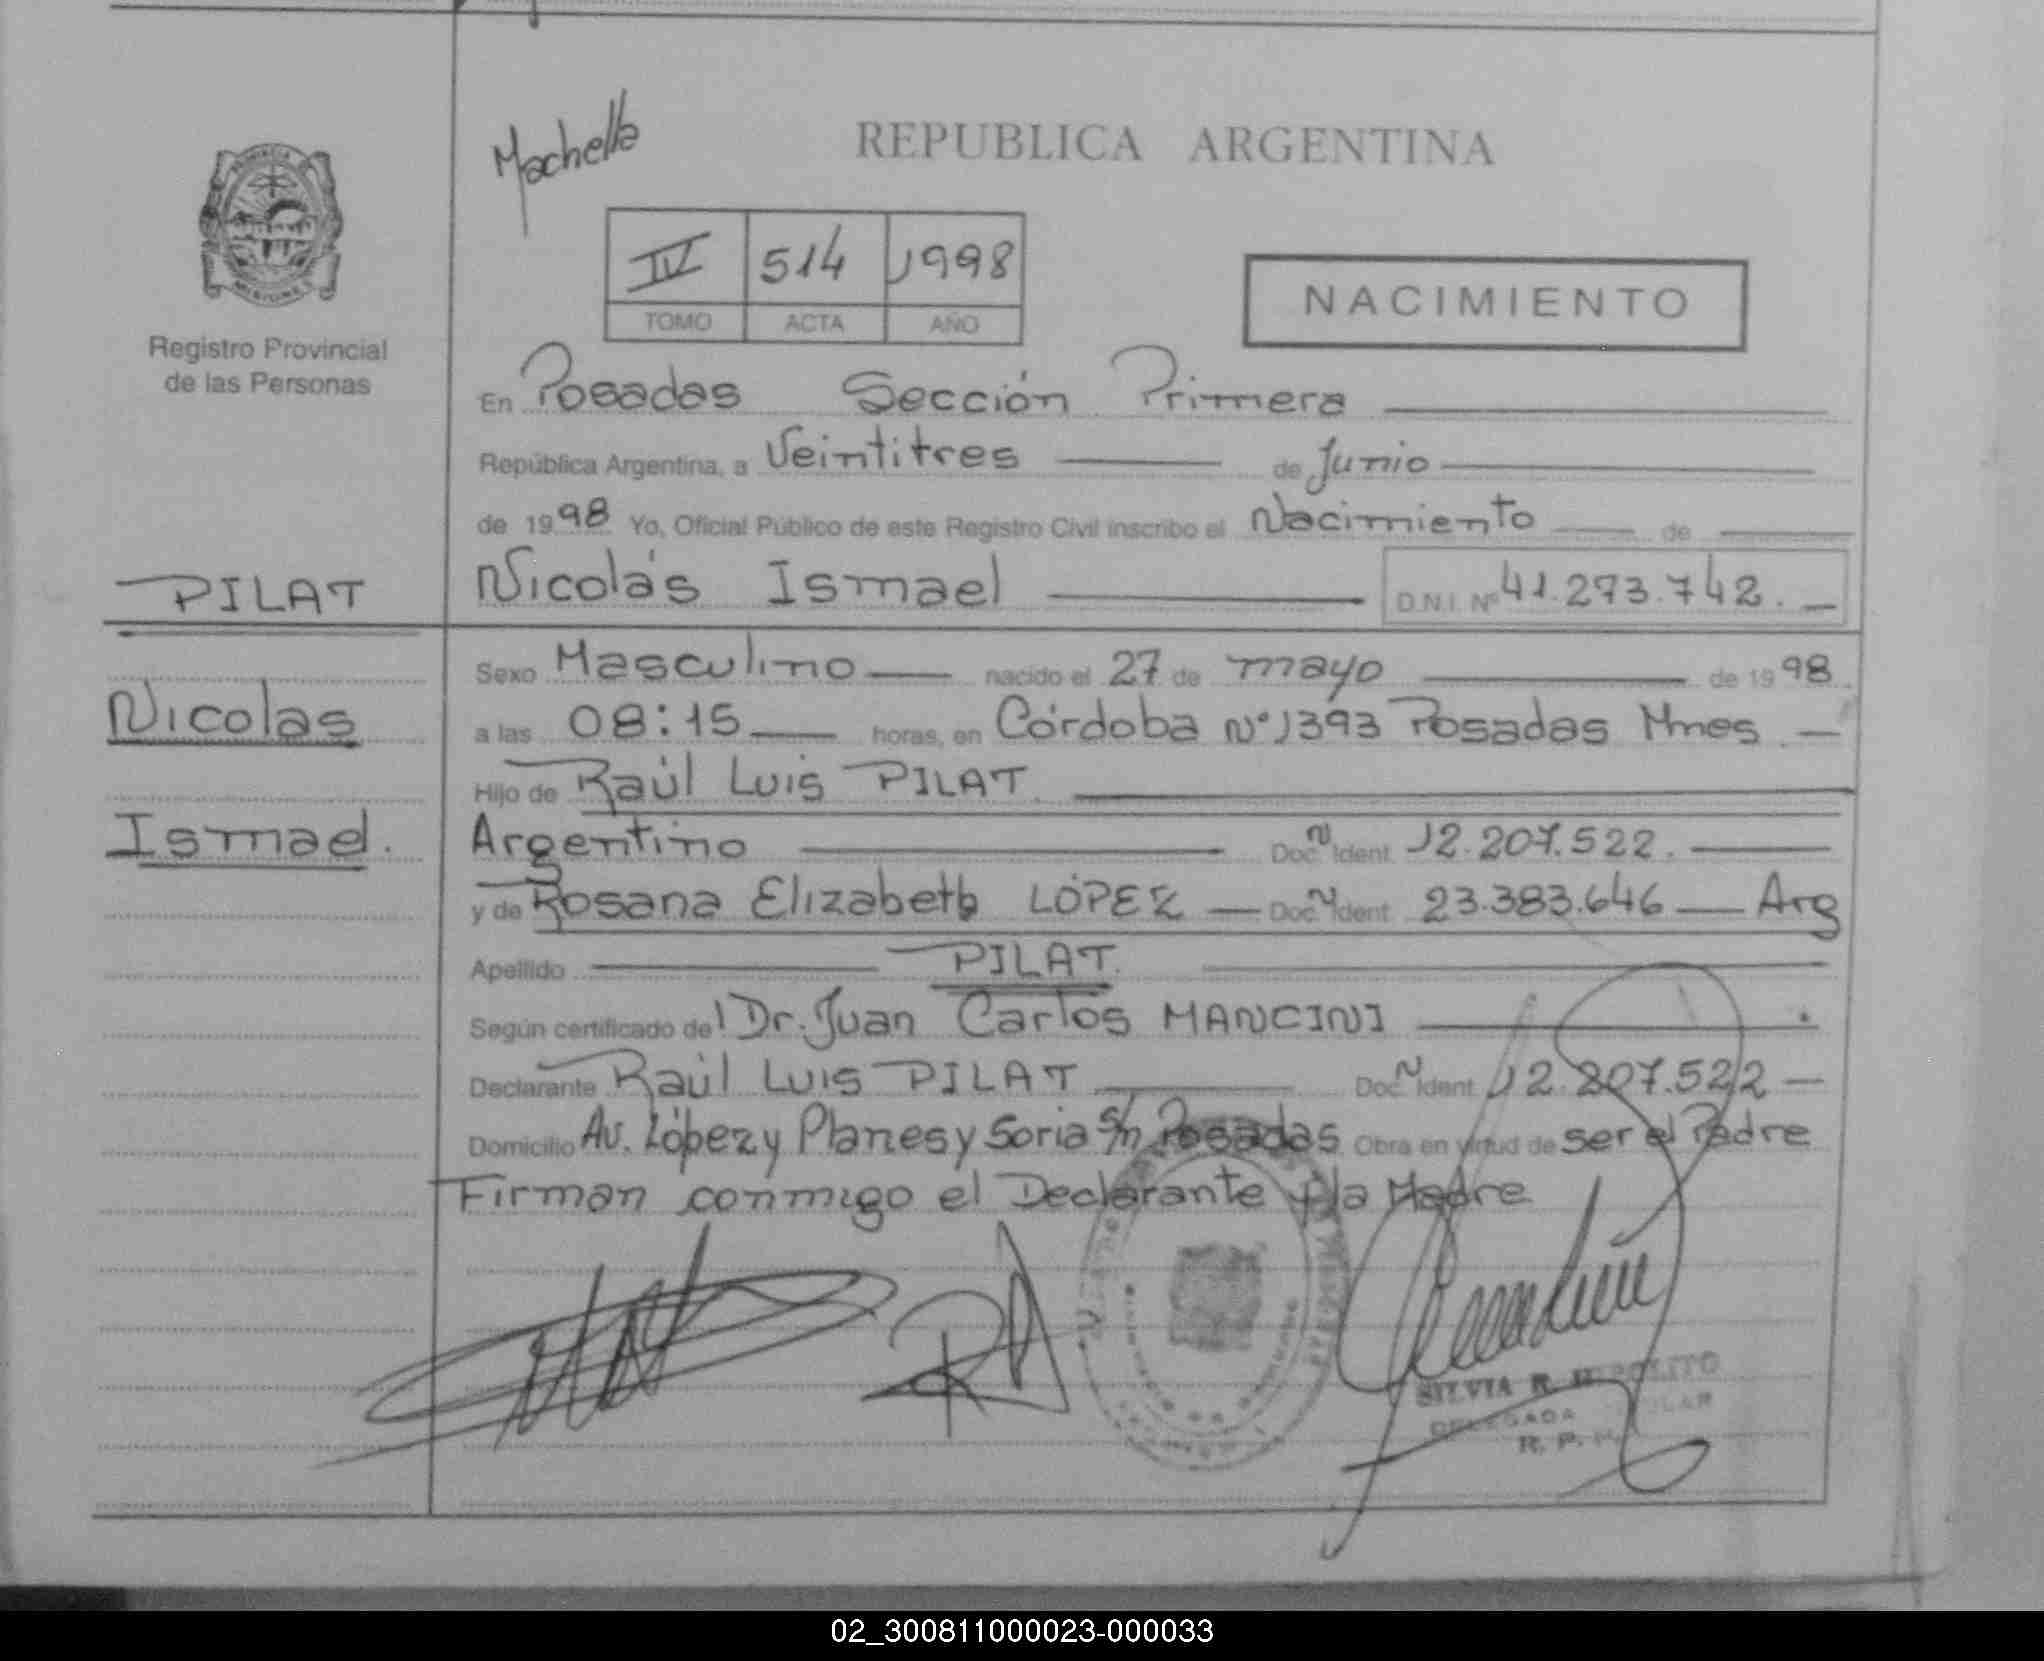 Machello
REPUBLICA ARGENTINA
IV 514 1998
TOMO ACTA AÑO
NACIMIENTO
Registro Provincial
de las Personas
En Posadas Sección Primera
República Argentina, a Veintitres de Junio
de 1998 Yo, Oficial Público de este Registro Civil inscribo el Nacimiento de
PILAT Nicolás Ismael D.N.I. Nº 41.273.742.
Sexo Masculino nacido el 27 de mayo de 1998
Nicolas
a las 08:15 horas, en Córdoba Nº 1393 Posadas Mnes
Hijo de Raúl Luis PILAT
Ismael.
Argentino Doc. N Ident. 12.207.522.
y de Rosana Elizabeth LÓPEZ Doc. N Ident. 23.383.646 Arg
Apellido PILAT.
Según certificado del Dr. Juan Carlos MANCINI
Declarante Raúl Luis PILAT Doc. N Ident. 12.207.522
Domicilio Av. López y Planes y Soria S/n Posadas Obra en virtud de ser el Padre
Firman conmigo el Declarante y la Madre
SILVIA R.
DELEGADA
R. P.
02_300811000023-000033